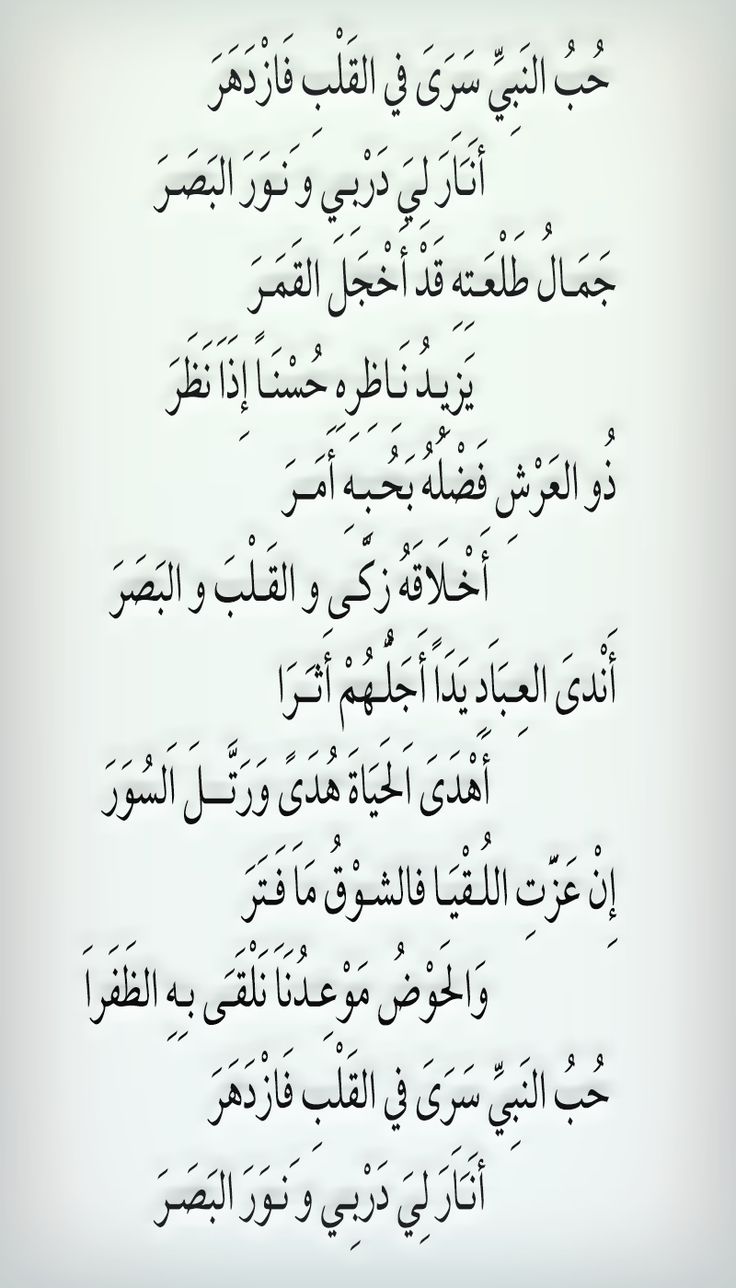 حُبُ النَبِيِّ سَرَىَ في القَلْبِ فَازْدَهَرَ
أنَاَرَ لِيَ دَرْبي وَ نوَرَ البَصَرَ
جَمَالُ طَلْعَته قَدْ أَخْجَلَ القَمَرَ
يَزِيدُ نَاظرِهِ حُسْنَاً إِذَاَ نَظَرَ
ذُو العَرْشِ فَضْلُهُ بَحُبهِ أَمَرَ
أَخْلَاقَهُ زكَّى و القَلْبَ و البَصَرَ
أَنْدىَ العِبَاَدِ يَدَاً أَجَلُّهُمْ أَثرَا
أَهْدَىَ اَلحَيَاةَ هُدَىً وَرَتَّلَ اَلسُوَرَ
إِنْ عَزَّتِ اللُقْيَا فالشوْقُ مَاَ فَتَرَ
وَالحَوْضُ مَوْعِدُنَاَ نَلْقَى بهِِ الظَفَراَ
حُبُ النَبِيِّ سَرَىَ في القَلْبِ فَازْدَهَرَ
أنَاَرَ لِيَ دَرْبِي وَ نوَرَ البَصَرَ